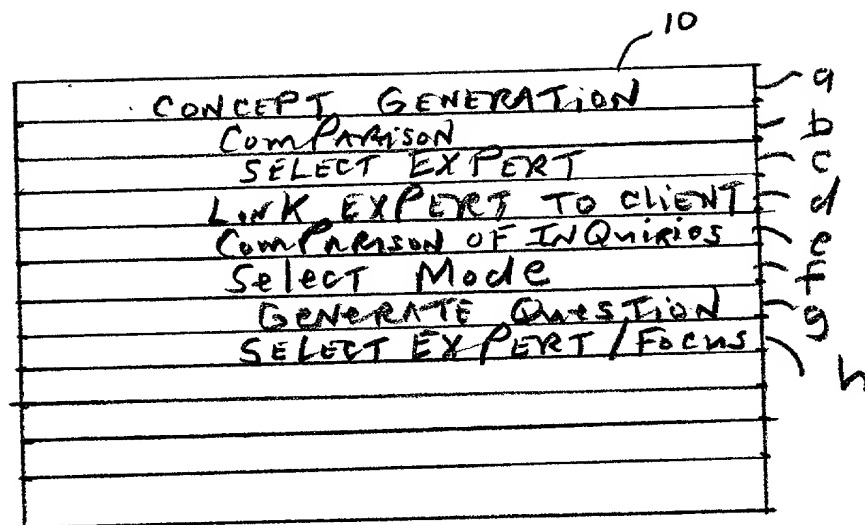 10
CONCEPT GENERATION a
ComPARISON b
SELECT EXPERT c
LINK EXPERT TO CLIENT d
ComPARISON OF INQuiRies e
Select Mode f
GENERATE QuesTION g
SELECT EXPERT / Focus h